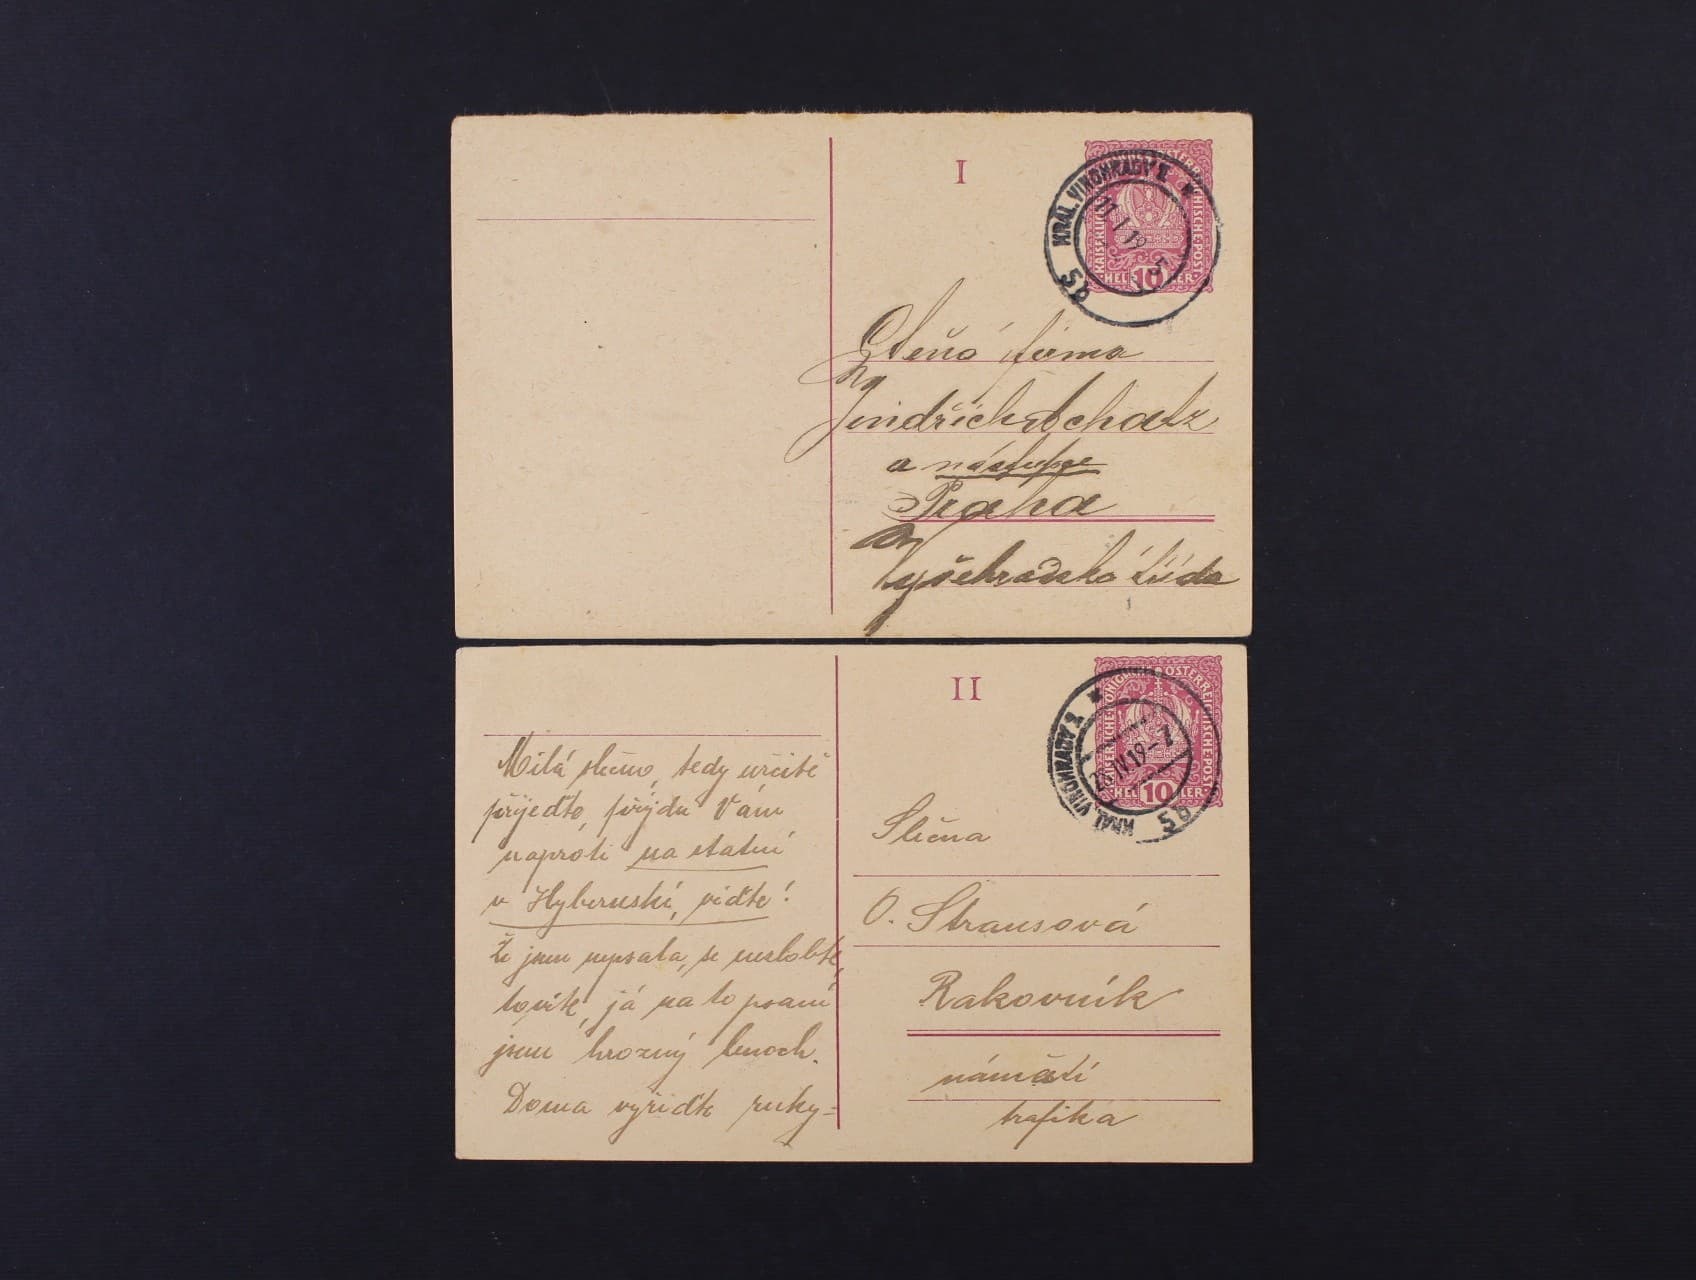 I
KRÁL. VINOHRADY 1 *
11 I 19 5
5b
KAISERLICHE
ÖSTERREICHISCHE·POST
10
HELLER
Ctěná firma
Jindřich Schatz
a nástupce
Praha
Vyšehradská třída
II
KRÁL. VINOHRADY 1 *
IV 19-7
5b
KAISERLICHE KÖNIGLICHE ÖSTERREICHISCHE·POST
HELLER
10
Milá slečno, tedy určitě
přijeďte, přijdu Vám
naproti na statní
v Hybernské, viďte!
Že jsem nepsala, se nezlobte,
to víte, já na to psaní
jsem hrozný lenoch.
Doma vyřiďte ruky-
Slečna
O. Strausová
Rakovník
náměstí
trafika